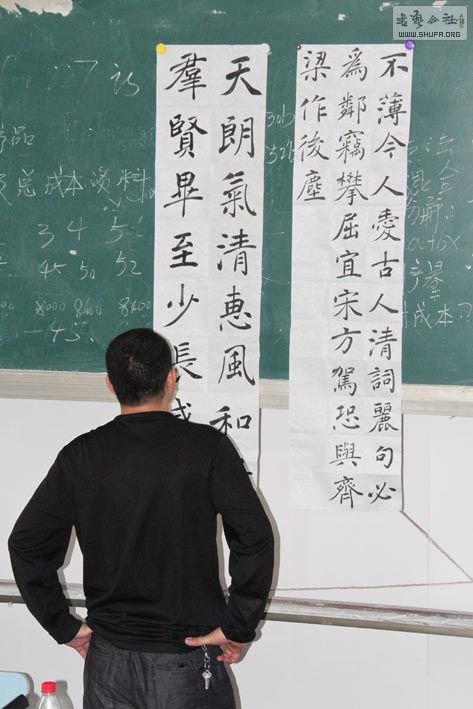 書藝公社
WWW.SHUFA.ORG
不薄今人愛古人清詞麗句必
為鄰竊攀屈宜宋方駕恐與齊
梁作後塵
天朗氣清惠風和
羣賢畢至少長
产品
总成本
3 4 5
45 50 52
a+bx
产量
成本?